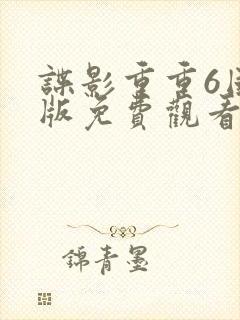 諜影重重6
版免費觀看
錦青墨